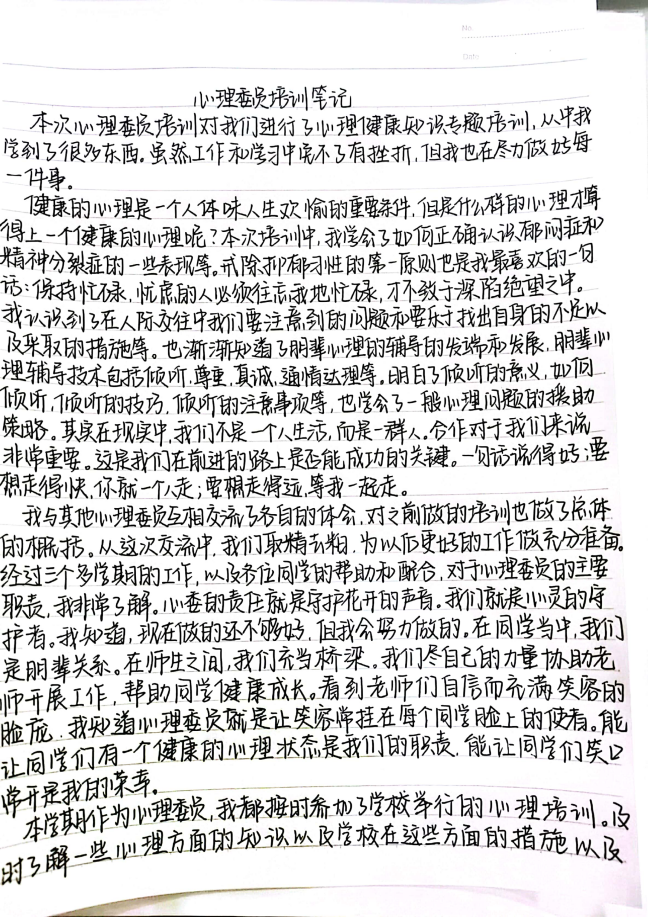 No
Date
心理委员培训笔记
本次心理委员培训对我们进行了心理健康知识专题培训，从中我
学到了很多东西。虽然工作和学习中免不了有挫折，但我也在尽力做好每
一件事。
健康的心理是一个人体味人生欢愉的重要条件，但是什么样的心理才算
得上一个健康的心理呢？本次培训中，我学会了如何正确认识郁闷症和
精神分裂症的一些表现等。戒除抑郁习性的第一原则也是我最喜欢的一句
话：保持忙碌，忧虑的人必须往忘我地忙碌，才不致于深陷绝望之中。
我认识到了在人际交往中我们要注意到的问题和要乐于找出自身的不足以
及采取的措施等。也渐渐知道了朋辈心理的辅导的发端和发展，朋辈心
理辅导技术包括倾听，尊重，真诚，通情达理等。明白了倾听的意义，如何
倾听，倾听的技巧，倾听的注意事项等，也学会了一般心理问题的援助
策略。其实在现实中，我们不是一个人生活，而是一群人。合作对于我们来说
非常重要。这是我们在前进的路上是否能成功的关键。一句话说得好：要
想走得快，你就一个人走；要想走得远，等我一起走。
我与其他心理委员互相交流了各自的体会，对之前做的培训也做了总体
的概括。从这次交流中，我们取精去粕，为以后更好的工作做充分准备。
经过三个多学期的工作，以及各位同学的帮助和配合，对于心理委员的主要
职责，我非常了解。心委的责任就是守护花开的声音。我们就是心灵的守
护者。我知道，现在做的还不够好，但我会努力做的。在同学当中，我们
是朋辈关系。在师生之间，我们充当桥梁。我们尽自己的力量协助老
师开展工作，帮助同学健康成长。看到老师们自信而充满笑容的
脸庞，我知道心理委员就是让笑容常挂在每个同学脸上的使者。能
让同学们有一个健康的心理状态是我们的职责，能让同学们笑口
常开是我的荣幸。
本学期作为心理委员，我都按时参加了学校举行的心理培训。及
时了解一些心理方面的知识以及学校在这些方面的措施以及